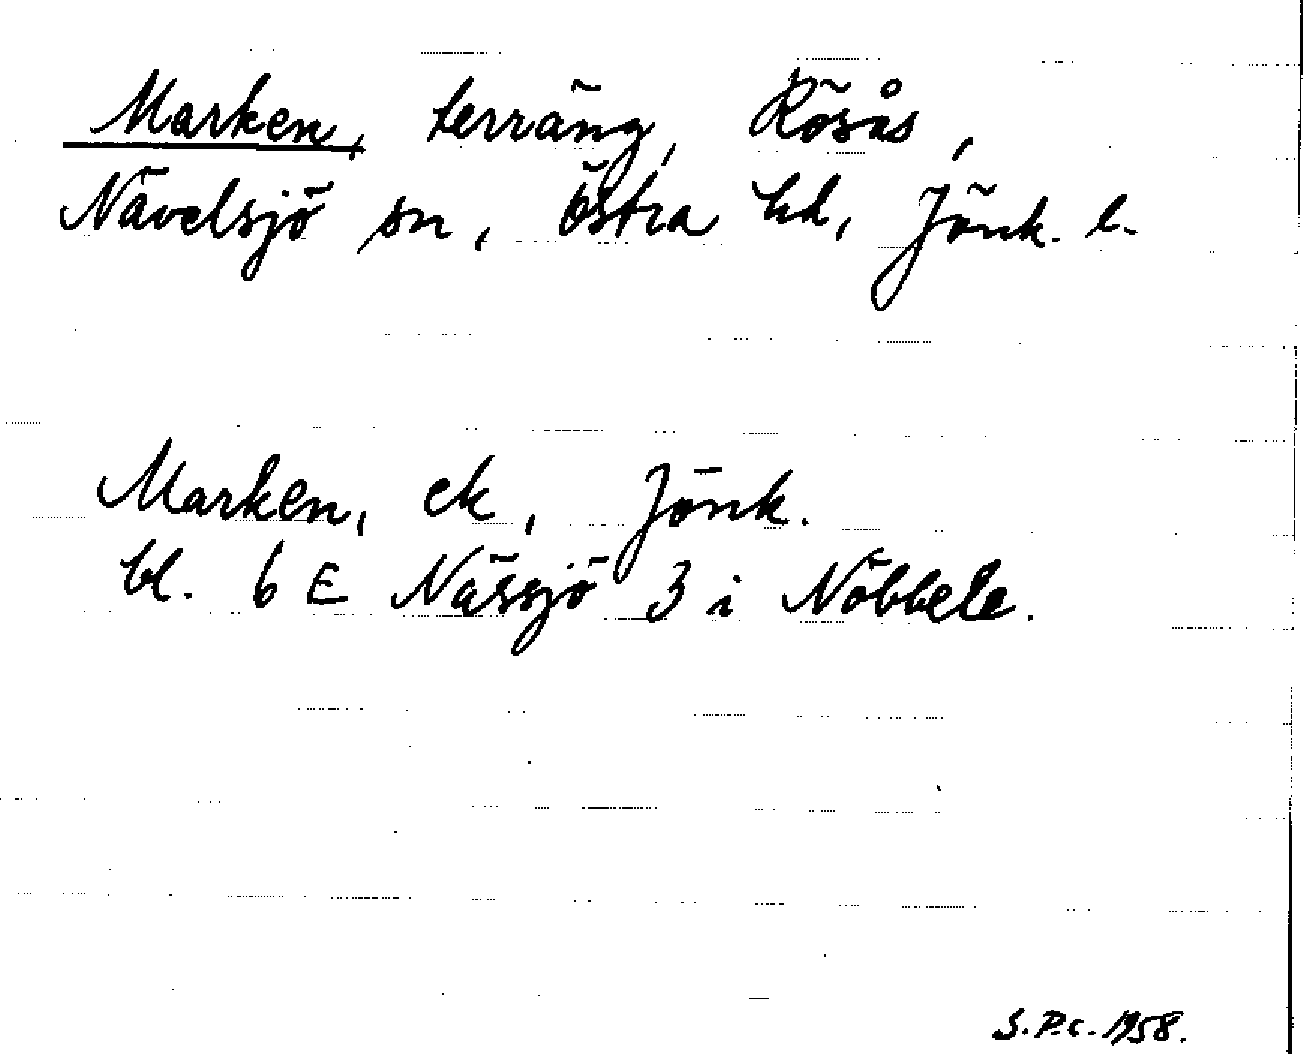 Marken, terräng, Rösås,
Nävelsjö sn, Östra hd, Jönk. l.
Marken, ek, Jönk.
bl. 6 E Nässjö 3 i Nöbbele.
S.P.C. 1958.